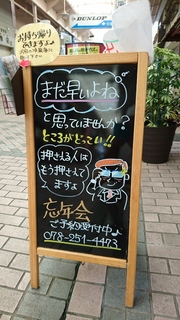 お持ち帰り
できますよ♪
DUNLOP
まだ早いよね
と思っていませんか?
ところがどっこい!!
押さえる人は
もう押さえて
ますよ
忘年会
ご予約受付中♪
078-251-4473